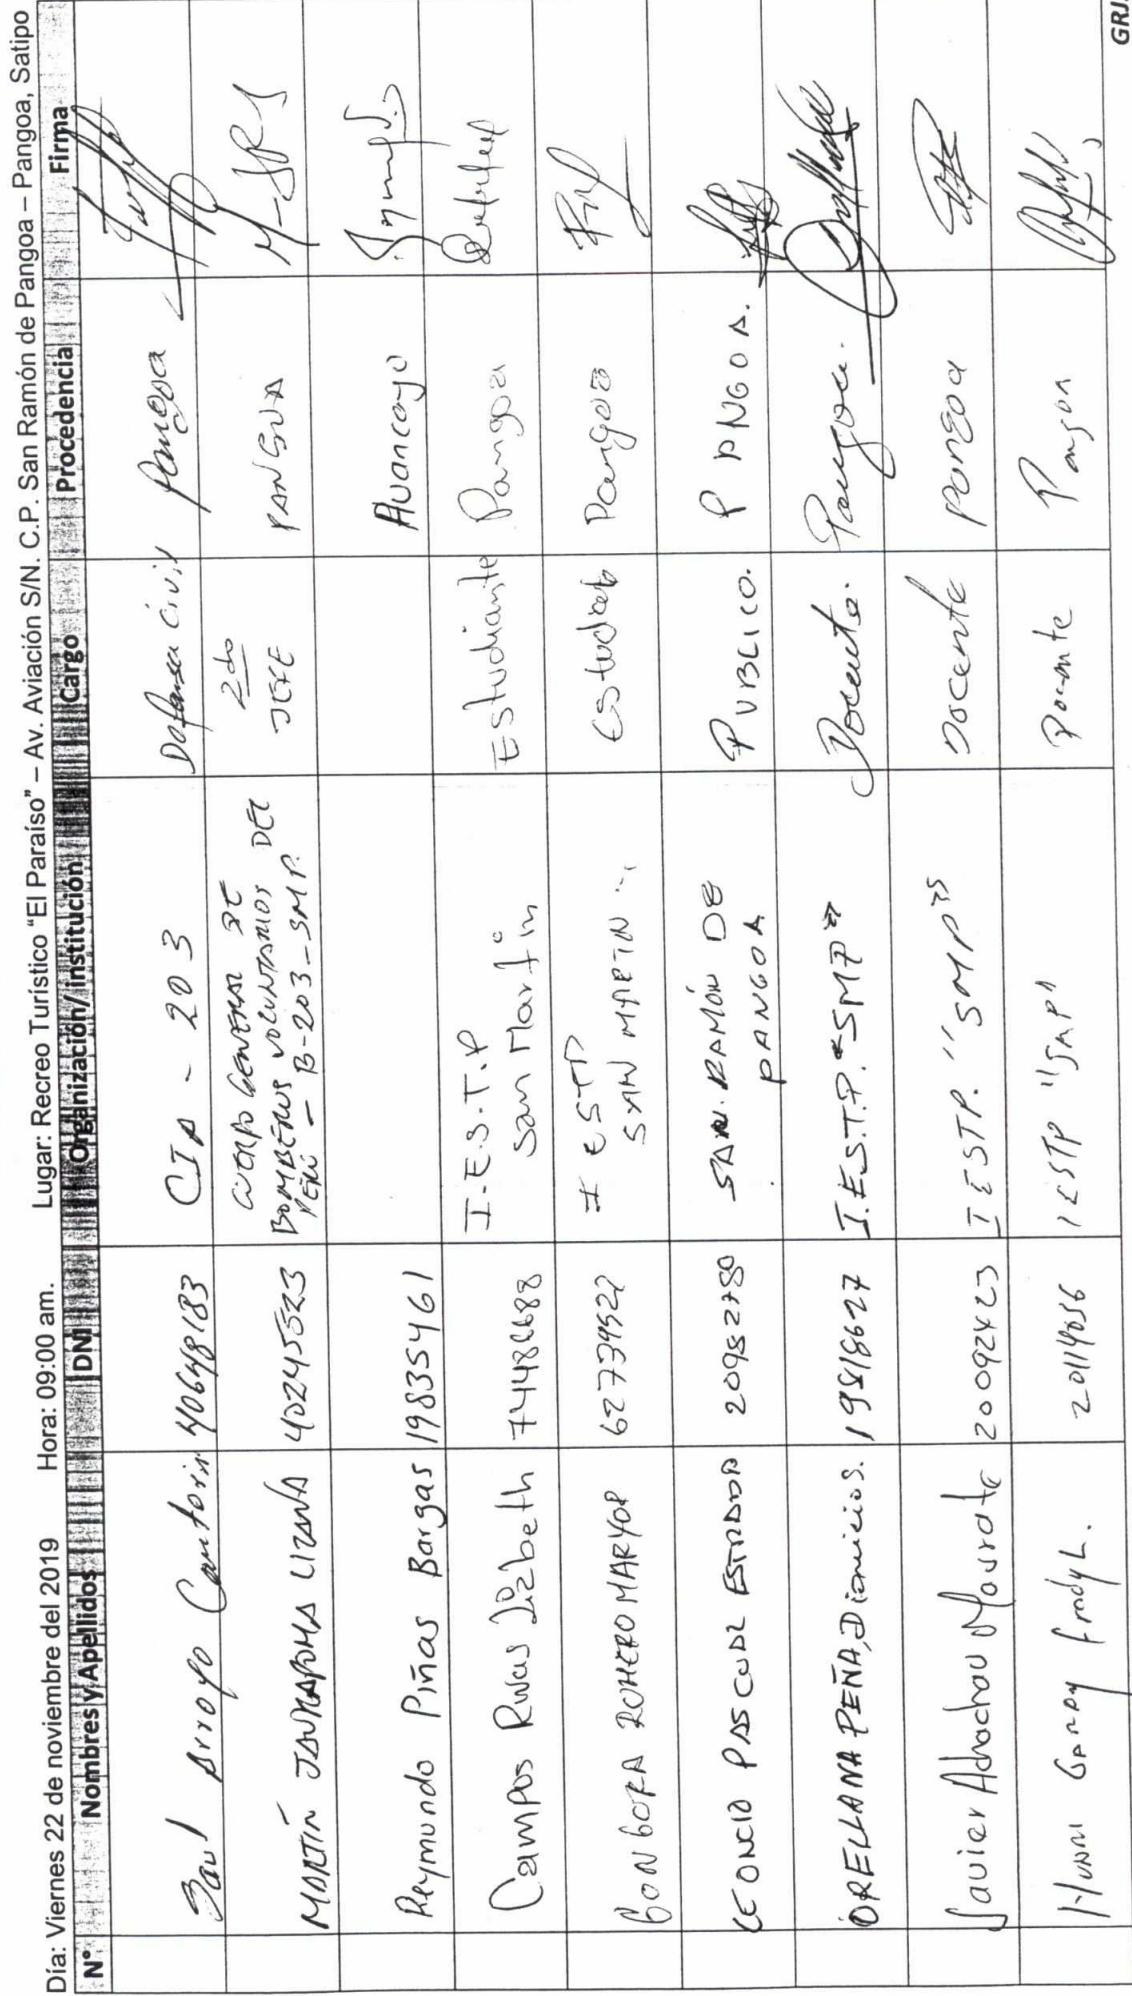 Día: Viernes 22 de noviembre del 2019 Hora: 09:00 am. Lugar: Recreo Turístico "El Paraíso" – Av. Aviación S/N. C.P. San Ramón de Pangoa – Pangoa, Satipo
N° Nombres y Apellidos DNI Organización/ institución Cargo Procedencia Firma
Arroyo Cantorin 40648183 CIA - 203 Defensa Civil Pangoa
MARTÍN LIZANA 40245523 CUERPO GENERAL DE BOMBEROS VOLUNTARIOS DEL PERÚ - B-203 - SMP. 2do JEFE PANGOA
Reymundo Piñas Bargas 19835461
Campos Rivas Lizbeth I.E.S.T.P San Martin Estudiante Pangoa
GONGORA ROMERO IESTP SAN MARTIN Pangoa
LEONCIO PASCUAL ESTRADA SAN RAMÓN DE PANGOA PUBLICO. PANGOA.
ORELLANA PEÑA, Dionicio S. 19818627 I.E.S.T.P. "SMP" Docente. Pangoa.
Javier IESTP. "SMP" Docente Pangoa
IESTP "SMP" Docente Pangoa
GRJ